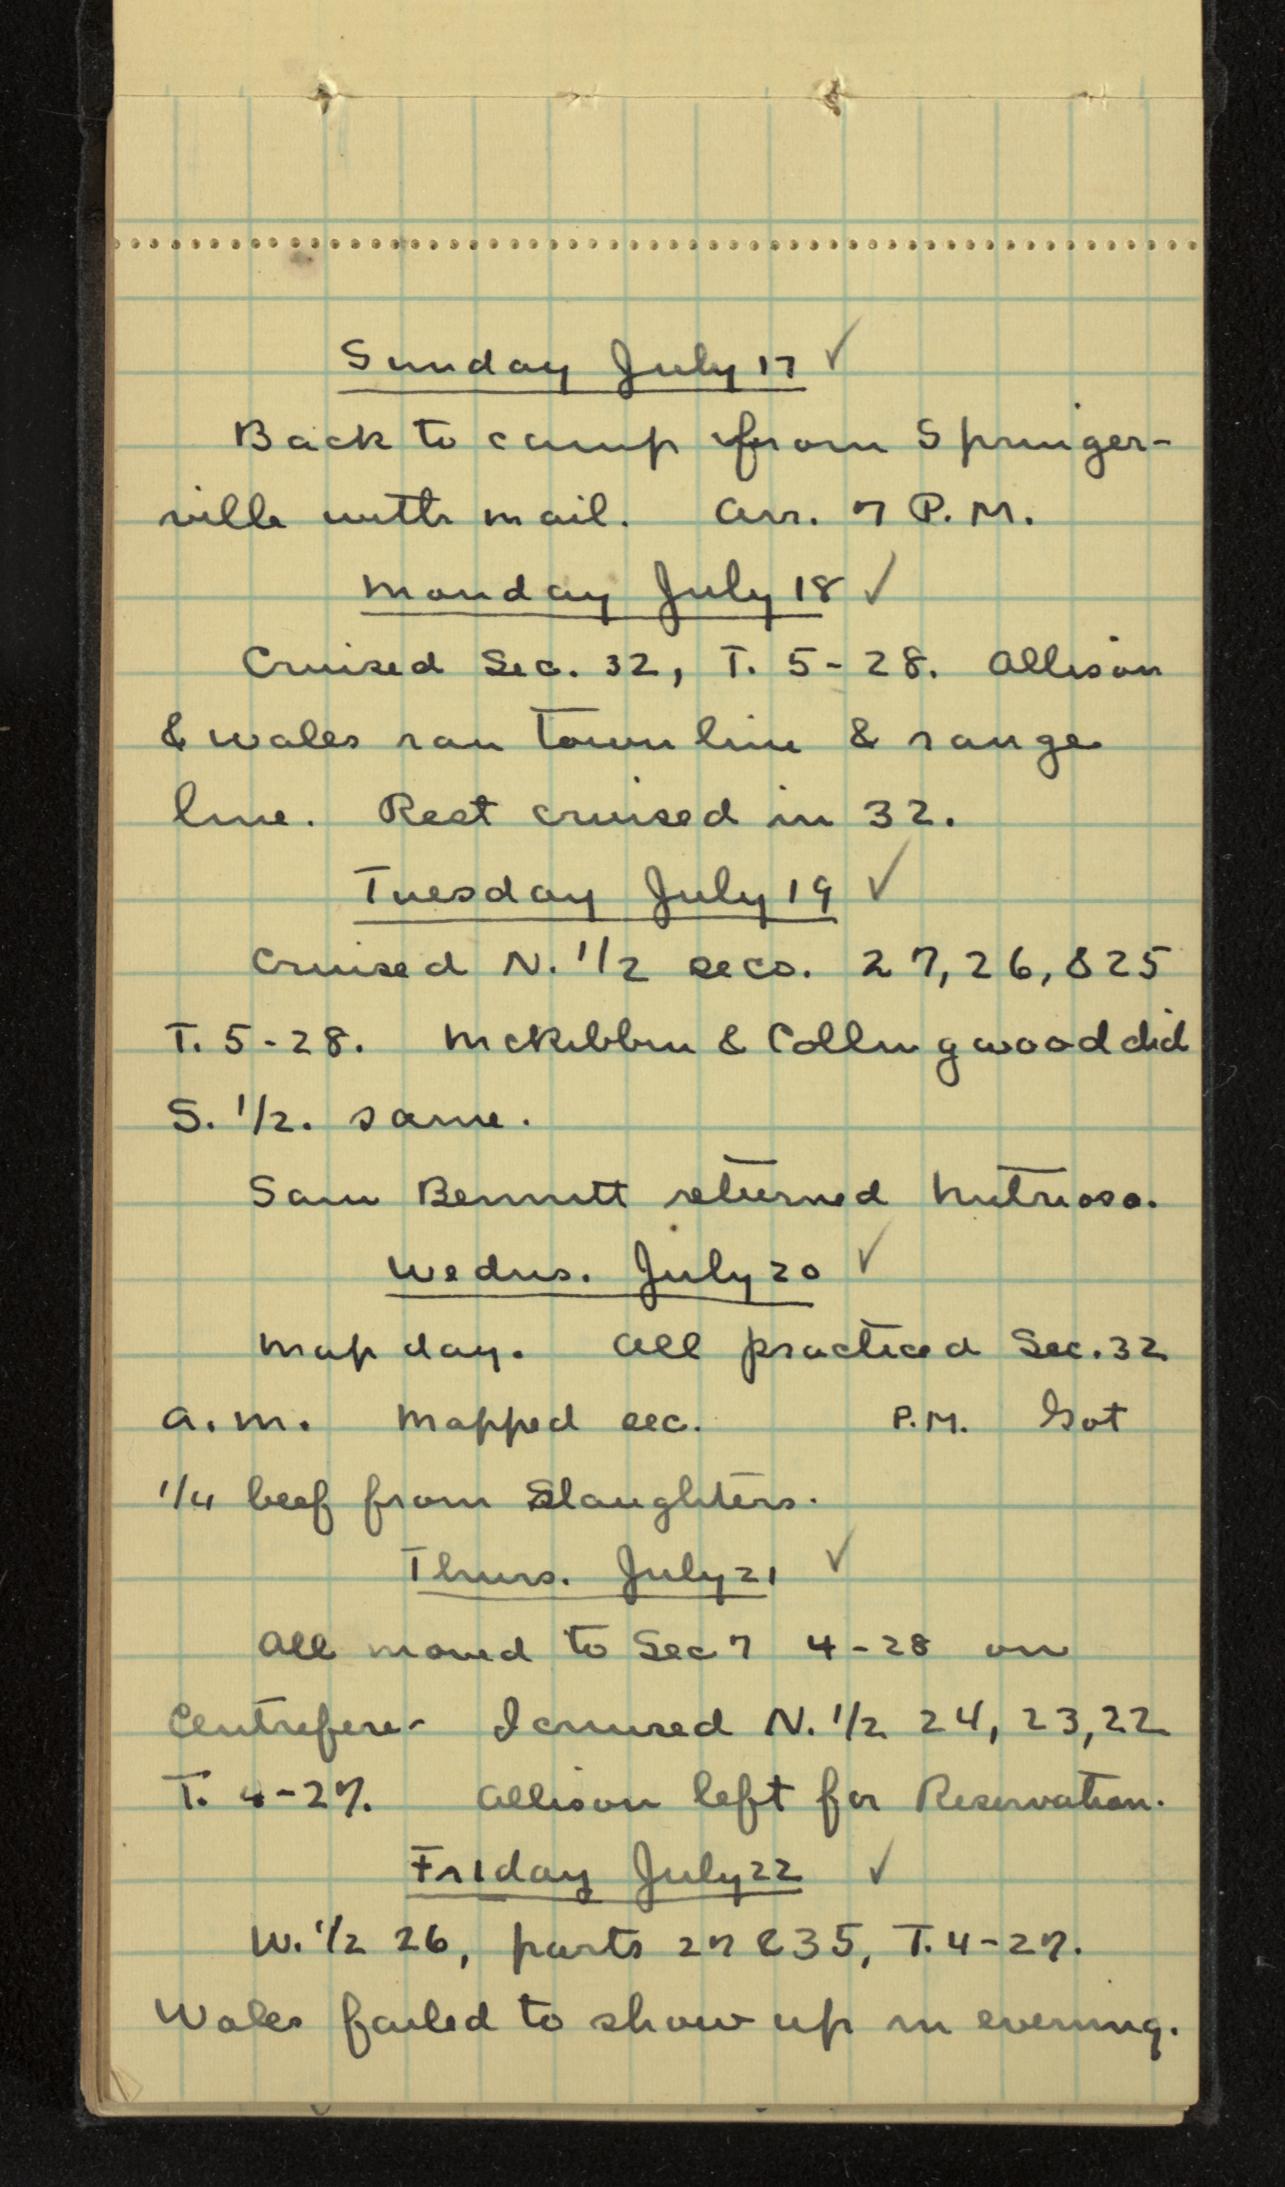 Sunday July 17 ✓
Back to camp from Springer-
ville with mail. Arr. 7 P.M.
Monday July 18 ✓
Cruised Sec. 32, T. 5-28. Allison
& Wales ran town line & range
line. Rest cruised in 32.
Tuesday July 19 ✓
Cruised N. 1/2 secs. 27, 26, & 25
T. 5-28. McKibbin & Collingwood did
S. 1/2. same.
Sam Bennett returned Nutrioso.
Wednes. July 20 ✓
Map day. All practiced Sec. 32
A.M. Mapped sec. P.M. Got
1/4 beef from Slaughters.
Thurs. July 21 ✓
All moved to Sec 7 4-28 on
Centrefire- I cruised N. 1/2 24, 23, 22
T. 4-27. Allison left for Reservation.
Friday July 22 ✓
W. 1/2 26, parts 27 & 35, T. 4-27.
Wales failed to show up in evening.